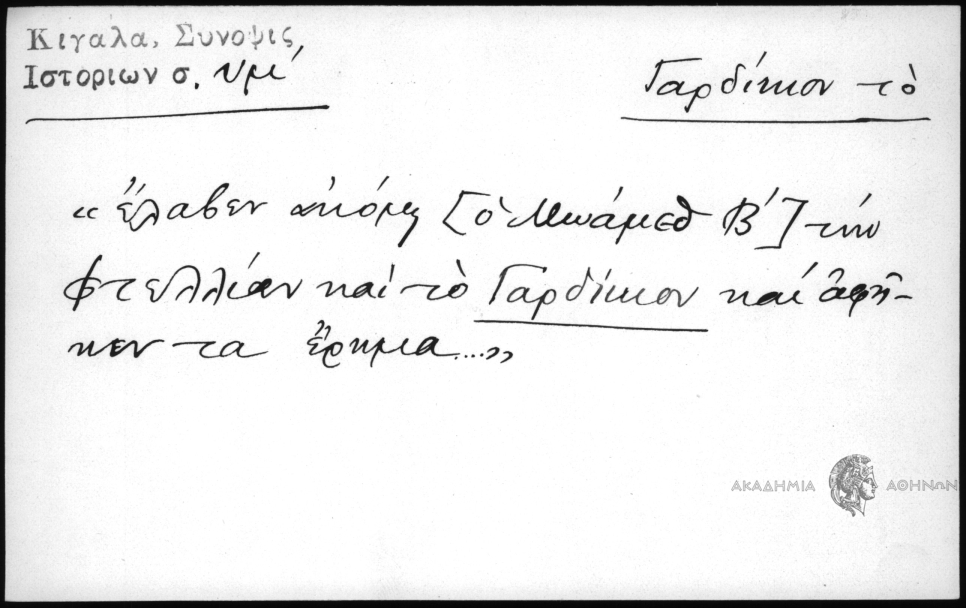 Κιγαλα, Συνοψις
Ιστοριων σ. υμε΄
Γαρδίκιον τὸ
«ἔλαβεν ἀκόμη [ὁ Μωάμεθ Β΄] τὴν
Φτελλίαν καὶ τὸ Γαρδίκιον καὶ ἀφῆ-
κεν τα ἔρημα....»
ΑΚΑΔΗΜΙΑ ΑΘΗΝΩΝ